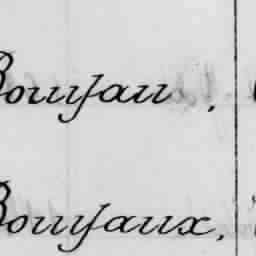 Bouyau ,
Bouyaux,